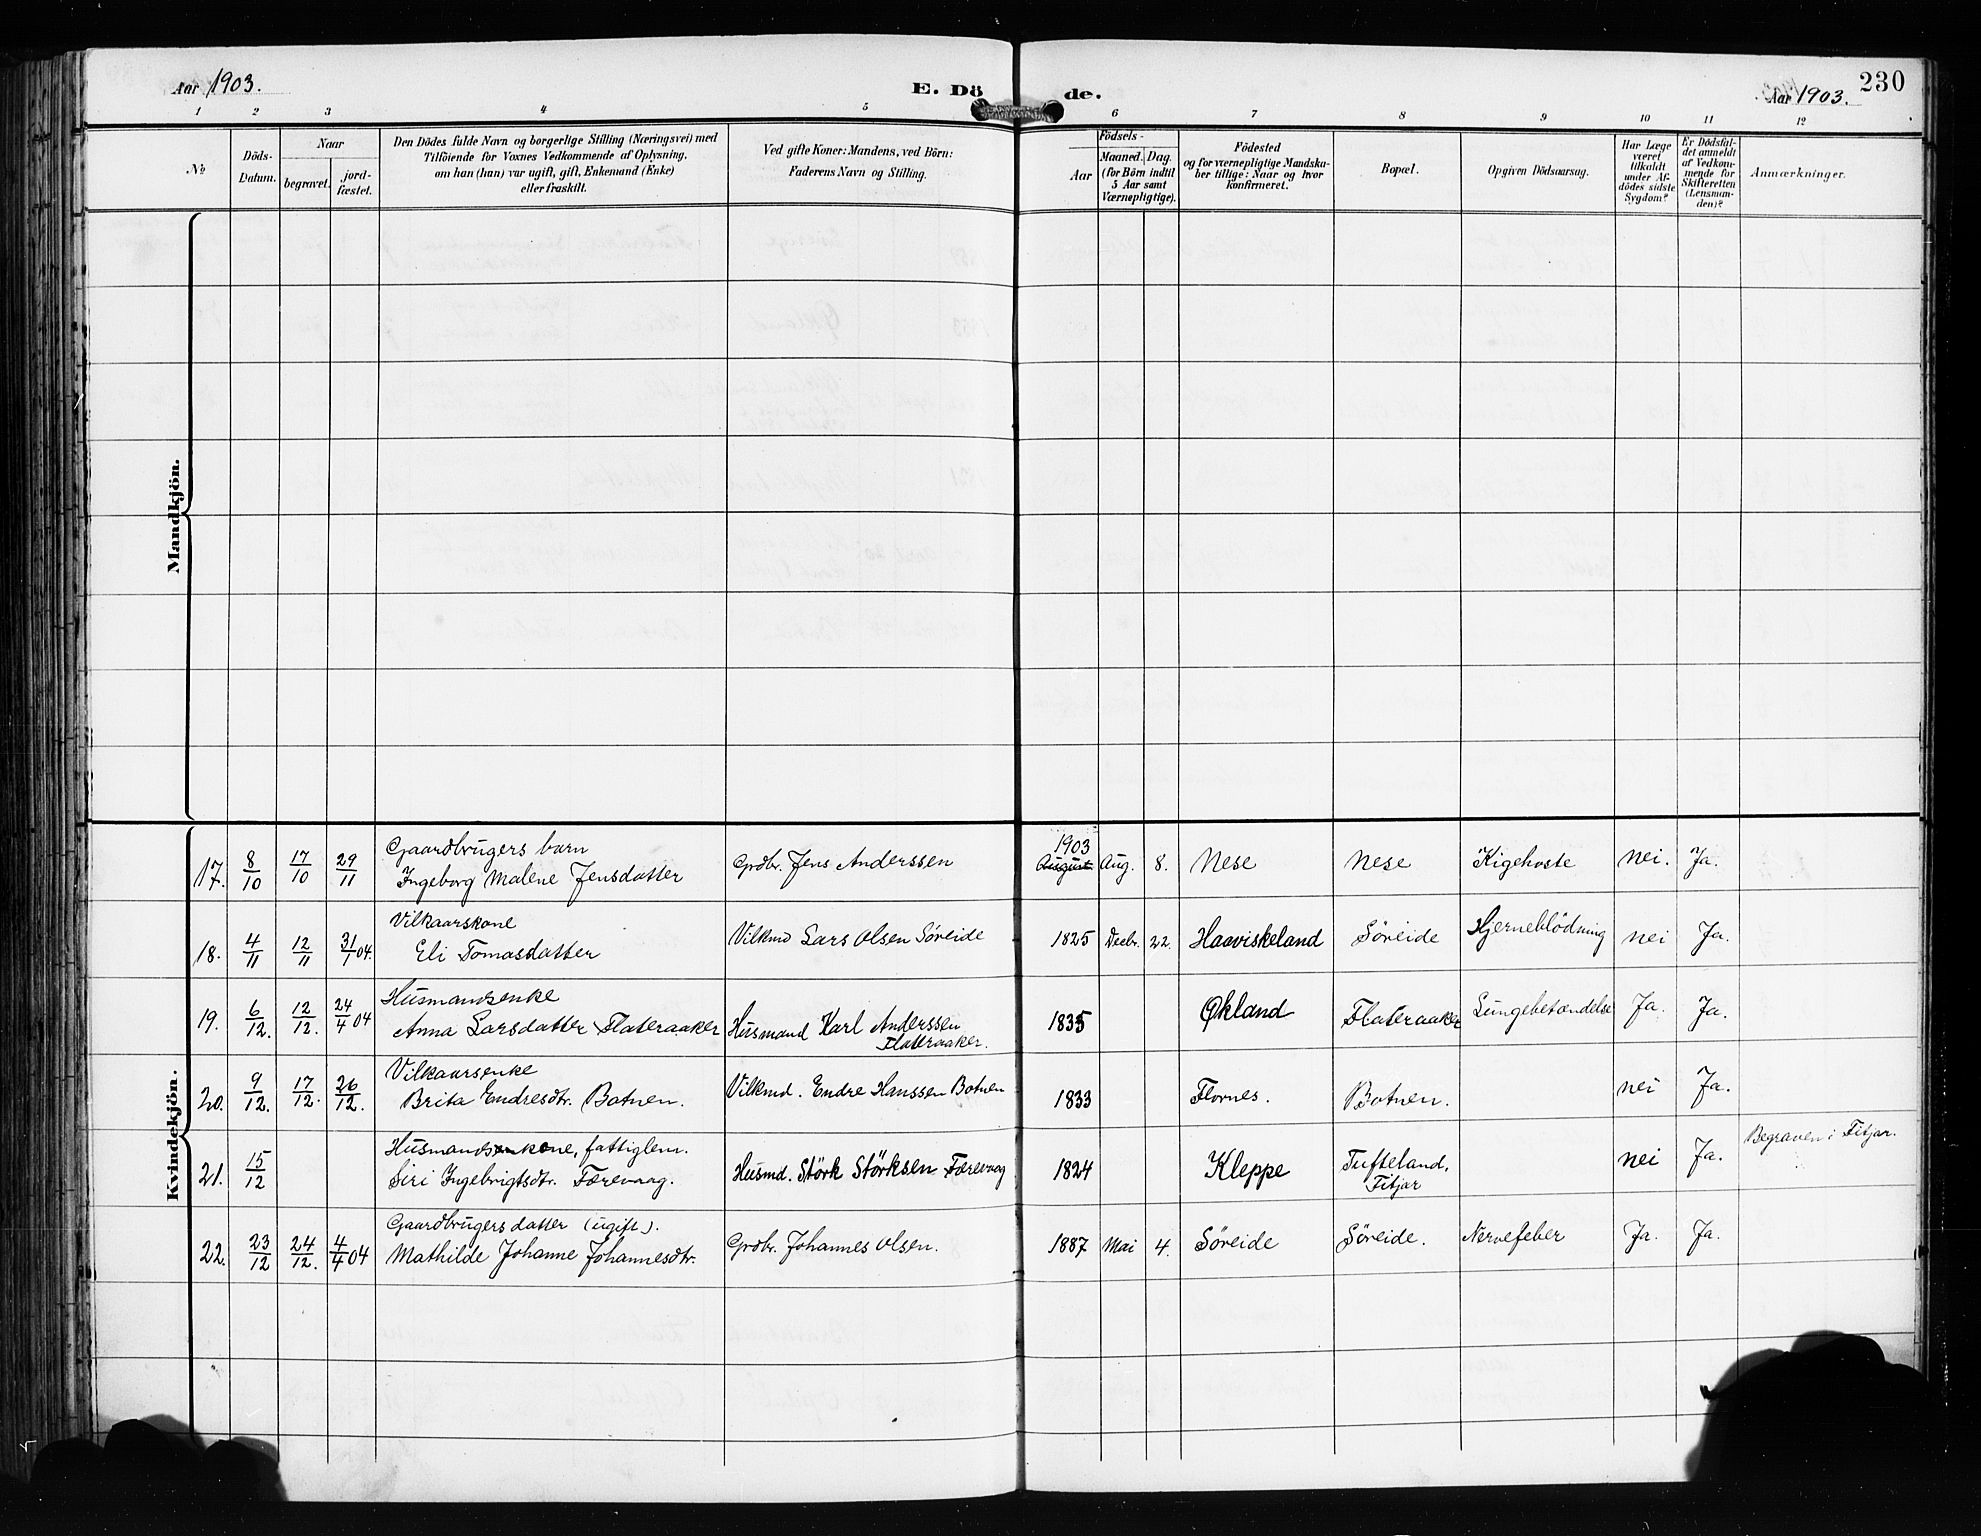 Aar 1903.
E. Dö de.
Aar 1903.
230
1 2 3 4 5 6 7 8 9 10 11 12
No
Döds-Datum.
Naar
begravet.
jord-fæstet.
Den Dödes fulde Navn og borgerlige Stilling (Næringsvei) med
Tilföiende for Voxnes Vedkommende af Oplysning,
om han (hun) var ugift, gift, Enkemand (Enke)
eller fraskilt.
Ved gifte Koner: Mandens, ved Börn:
Faderens Navn og Stilling.
Födsels-
Aar
Maaned. Dag.
(for Börn indtil
5 Aar samt
Værnepligtige).
Födested
og for værnepligtige Mandska-
ber tillige: Naar og hvor
konfirmeret.
Bopæl.
Opgiven Dödsaarsag.
Har Læge
været
tilkaldt
under Af-
dödes sidste
Sygdom?
Er Dödsfal-
det anmeldt
af Vedkom-
mende for
Skifteretten
(Lensman-
den)?
Anmærkninger.
Mandkjön.
Kvindekjön.
17. 8/10 17/10 29/11 Gaardbrugers barn
Ingeborg Malene Jensdatter
Grdbr. Jens Anderssen
1903
August Aug. 8. Nese Nese Kigehoste nei. Ja.
18. 4/11 12/11 31/1 04. Vilkaarskone
Eli Tomasdatter
Vilkmd Lars Olsen Søreide 1825 Decbr. 22. Haaviskeland Søreide Hjerneblödning nei Ja.
19. 6/12. 12/12. 24/4 04 Husmandsenke
Anna Larsdatter Flateraaker
Husmand Karl Anderssen
Flateraaker.
1835 Økland Flateraaker Lungebetændelse Ja. Ja.
20. 9/12. 17/12. 26/12. Vilkaarsenke
Brita Endresdtr. Botnen.
Vilkmd. Endre Hanssen Botnen 1833 Flornes. Botnen. nei Ja.
21. 15/12 Husmandskone, fattiglem.
Siri Ingebrigtsdtr. Færevaag.
Husmd. Störk Störksen Færevaag 1824 Kleppe Tufteland,
Fitjar
nei Ja. Begraven i Fitjar.
22. 23/12 24/12. 4/4 04 Gaardbrugers datter (ugift).
Mathilde Johanne Johannesdtr.
Grdbr. Johannes Olsen. 1887 Mai 4. Søreide Søreide. Nervefeber Ja. Ja.